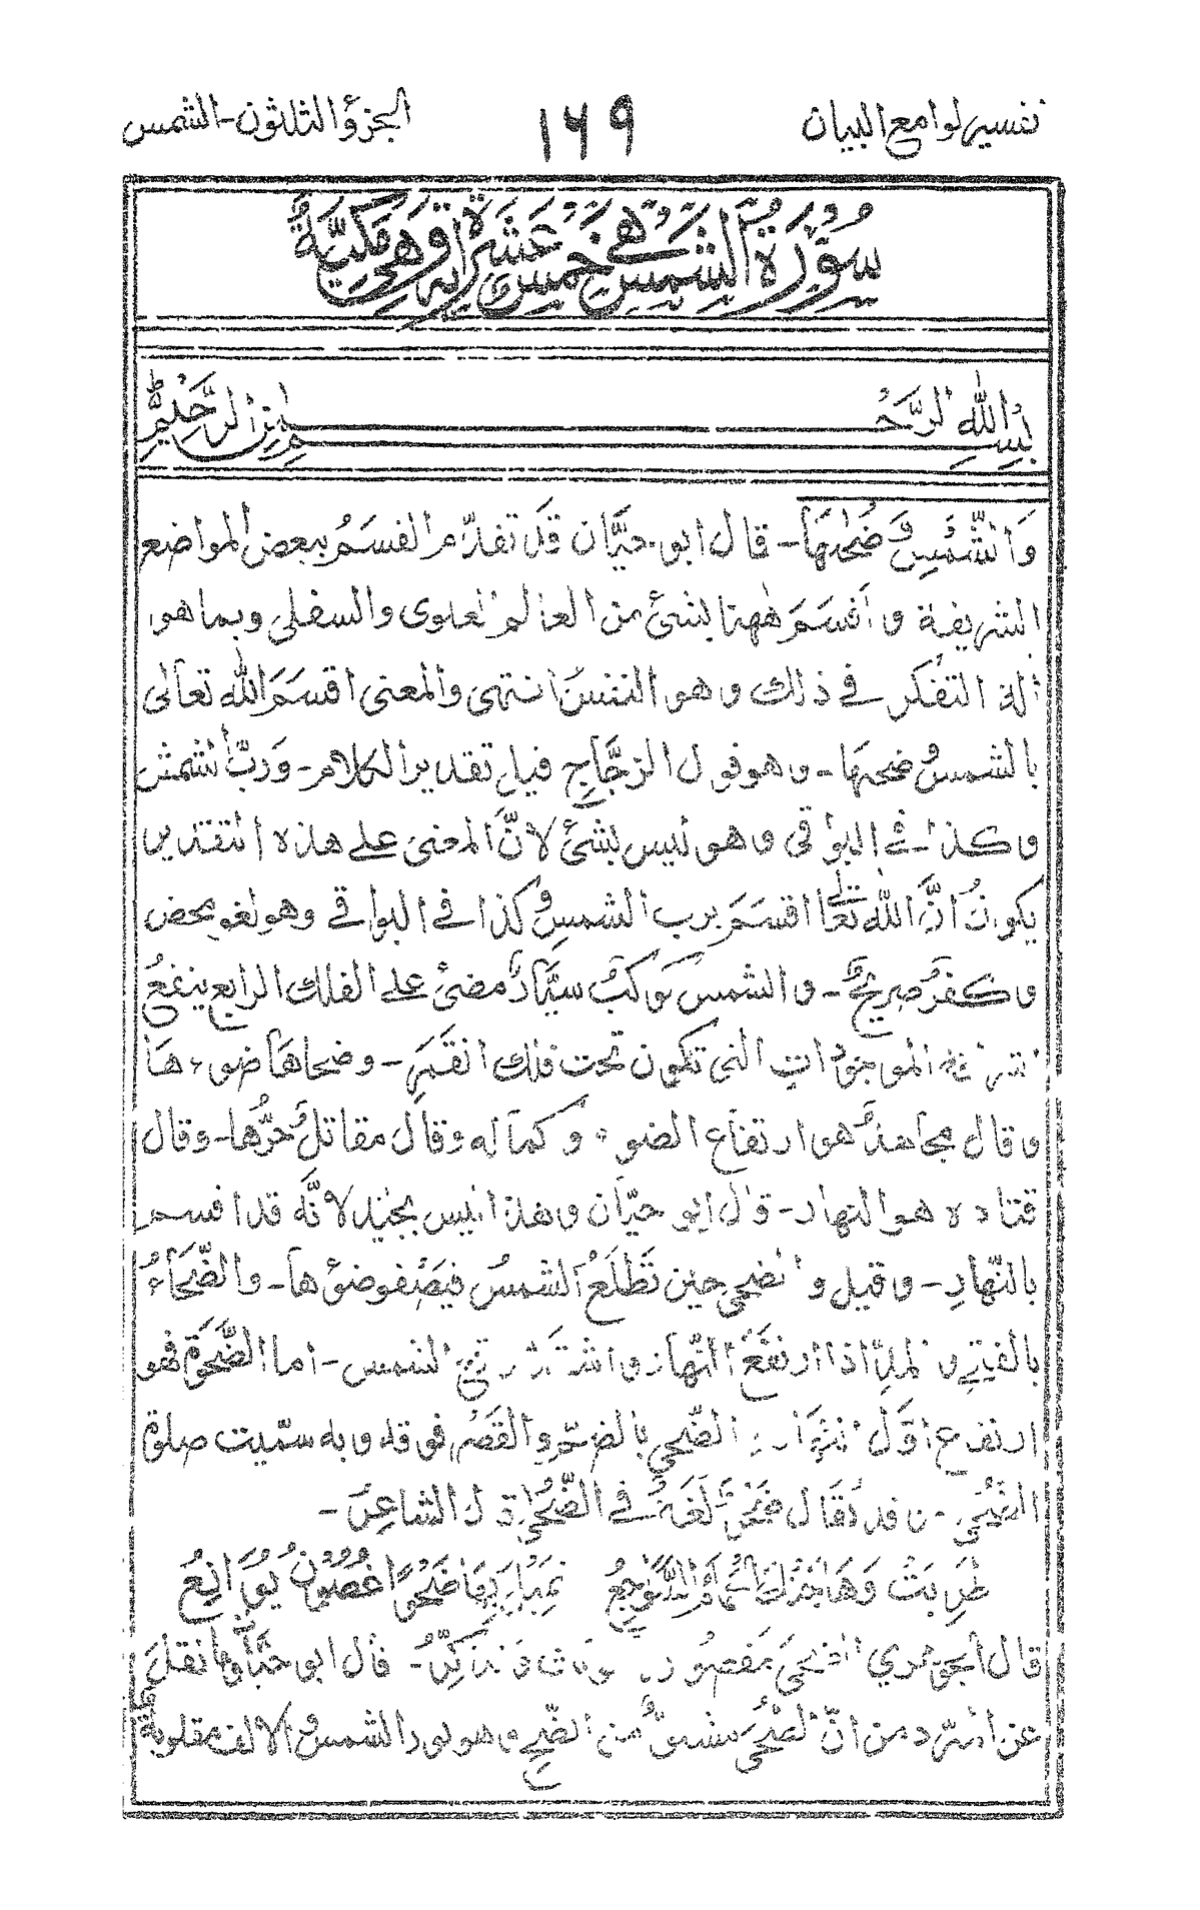 تفسير لوامع البيان ١٦٩ الجزؤ الثلاثون-الشمس
سُوْرَةُ الشَّمْسِ هي خَمْسَ عَشَرَةَ اية وهي مَكِّيَّةٌ
بِسْمِ اللهِ الرَّحْمٰنِ الرَّحِيْمِ
وَالشَّمْسِ وَضُحٰهَا- قال ابو حيَّان قد تقدّم القسَمُ ببعض المواضع
الشريفة و اَقْسَمَ هٰهنا بشئ من العالم العلوى والسفلى وبما هو
اٰلة التفكر فى ذلك و هو النفسُ انتهى والمعنى اقسَمَ الله تعالى
بالشمس وضحها- وهو قول الزجّاج قيل تقدير الكلام- وَرَبِّ الشمس
وكذا فے البواقى وهو ليس بشئ لانَّ المعنى على هذه التقدير
يكونُ انَّ الله تعالىٰ اقسَمَ برب الشمس وكذا فے البواقے وهو لغو محض
وكفرٌ صريحٌ- والشمس كوكبٌ سيَّارٌ مضئ على الفلك الرابع ينفعُ
الموجودات التى تكون تحت فلك القمَرِ- وضحاها ضوءها
وقال مجاهدٌ هو ارتفاع الضوء وكماله وقال مقاتلٌ حرُّها- وقال
قتاده هو النهار- قال ابو حيّان وهذا ليس بجيّد لانَّه قد اقسم
بالنّهارِ- وقيل والضحى حين تَطْلَعُ الشمسُ فيَصْفو ضوئها- والضَّحَاءُ
بالفتح والمدّ اذا ارتفعَ النّهار واشتدّ الشمس- اما الضَّحوَة فهو
ارتفاع اوَّل النهار الضّحى بالضمّ والقَصْر فوقه وبه سمّيت صلوة
الضحى- وقد يُقال ضَحْوٌ لُغَةٌ فے الضُّحٰى قال الشاعر-
طَرِبْتُ وَهَاجَتْكَ السَّوَاجِعُ تَمِيْلُ بِهَا ضَحْوًا غُصُوْنٌ يَوَانِعُ
قال الجوهري الضحى مَقصُور يونث و يذكّر- قال ابو حيّان وما نقل
عن المبرّد من انّ الضُّحٰى مشتقٌّ من الضّحِّ وهو نور الشمس والالف مقلوبةٌ